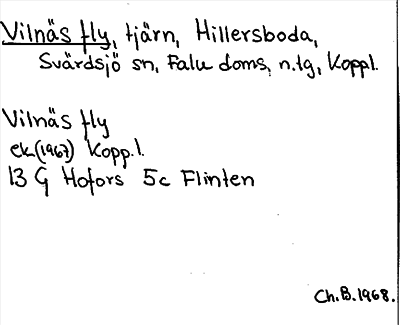 Vilnäs fly, tjärn, Hillersboda,
Svärdsjö sn, Falu doms, n.tg, Koppl.
Vilnäs fly
ek(1967) Kopp.l.
13 G Hofors 5c Flinten
Ch.B.1968.